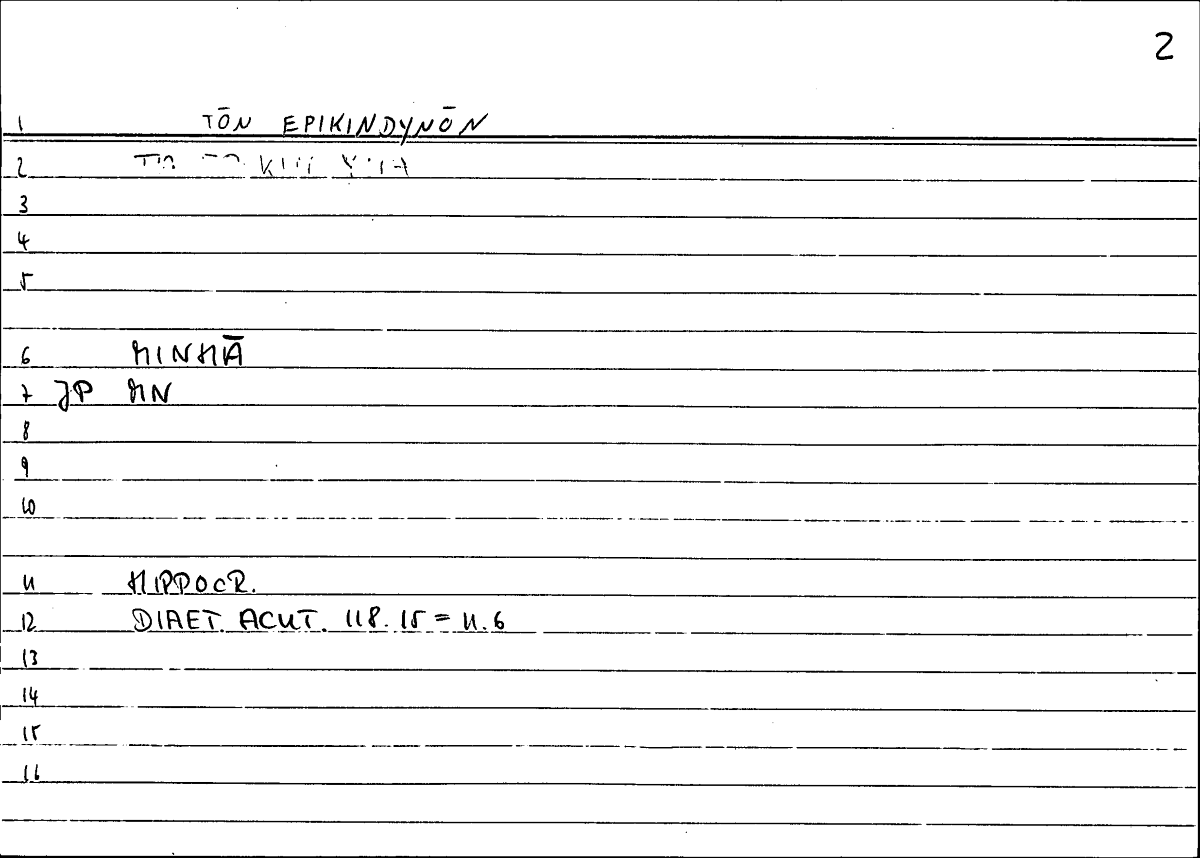 2
1 TŌN EPIKINDYNŌN
2
3
4
5
6 MINHĀ
7 JP MN
8
9
10
11 HIPPOCR.
12 DIAET. ACUT. 118.15 = 11.6
13
14
15
16